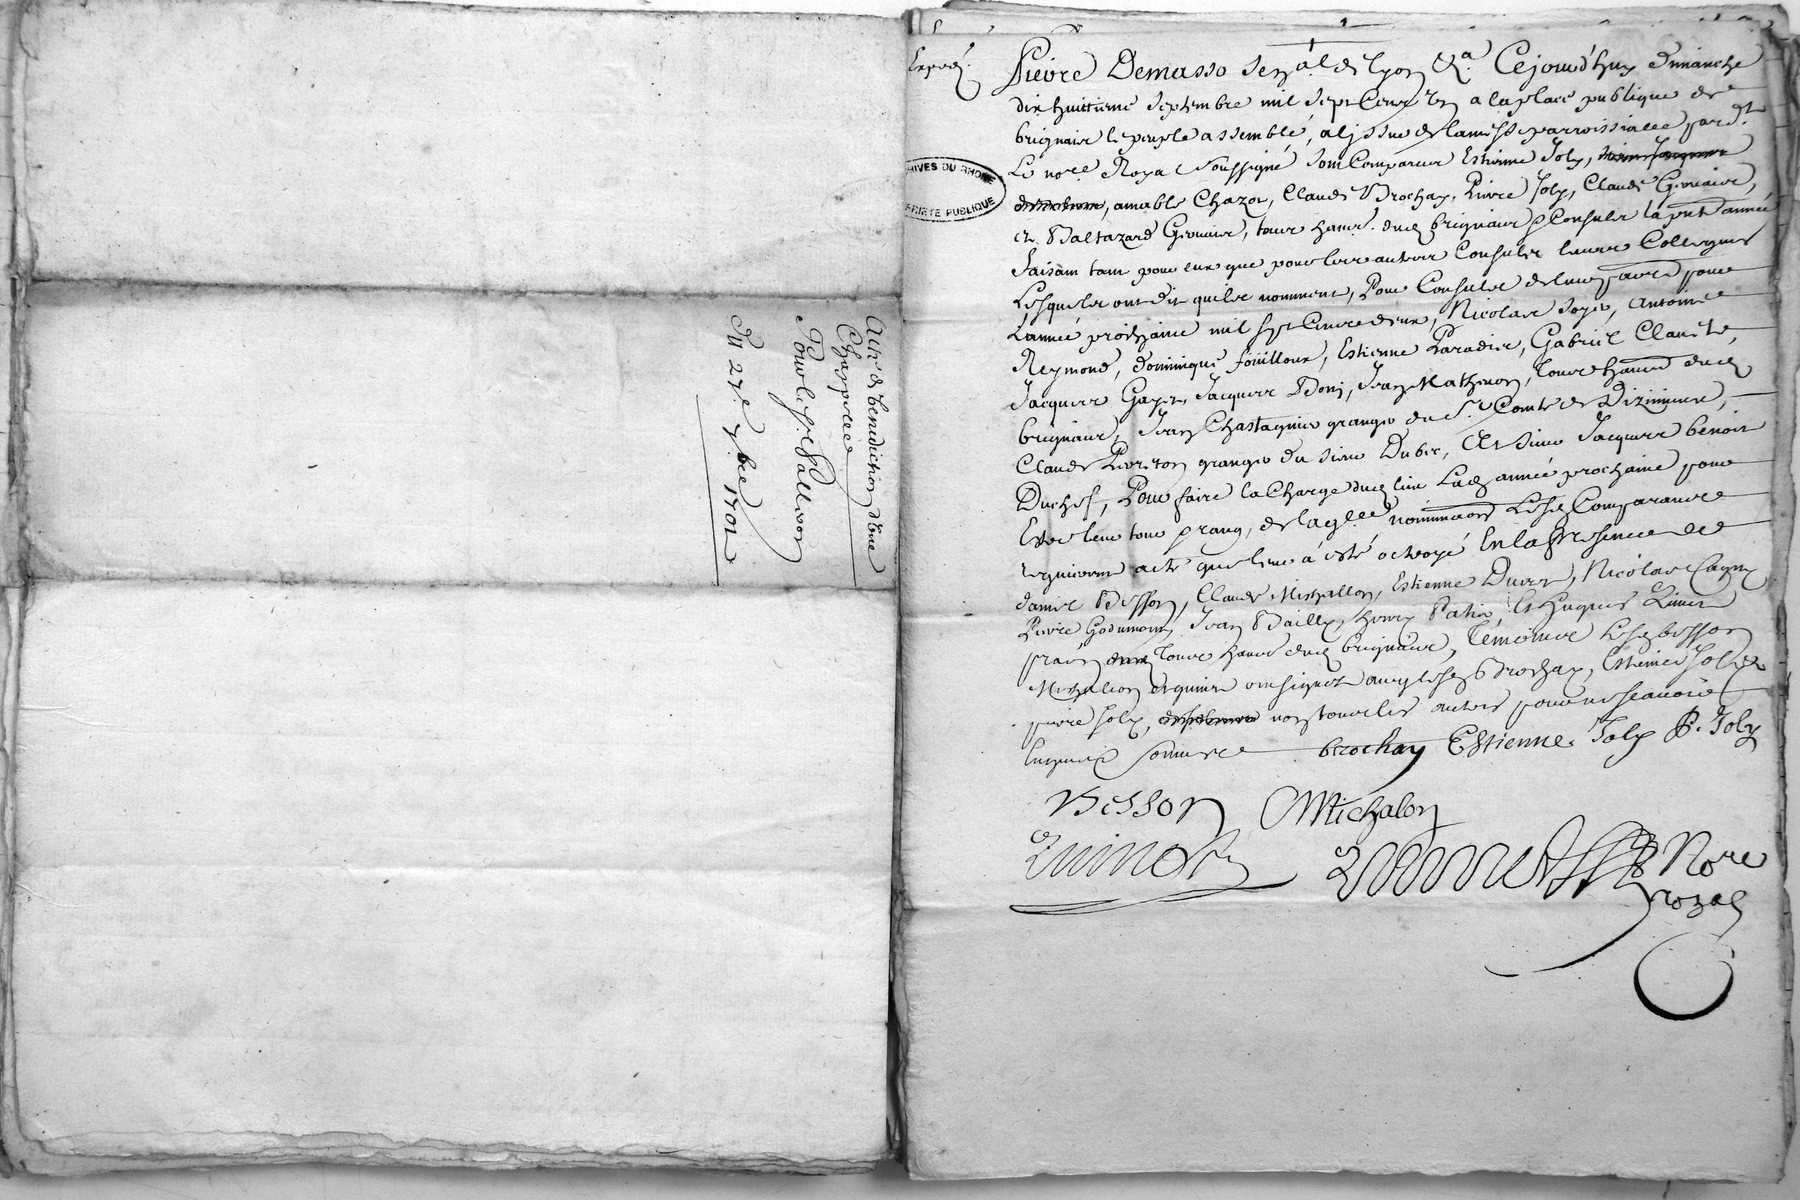 Acte de benediction d'une
Chappelle
Pour le Sr. Vallvon
Du 27e. 7bre 1701
Expedié.
ARCHIVES DU RHONE
PROPRIETE PUBLIQUE
Pierre Demasso Senal. de lyon &a. Cejourd'huy dimanche
dix huittieme Septembre mil sept Cens un a la place publique de
brignais le peuple assemblé, a lissue de la messe parroissialle pardt.
Le nore. Royal Soussigné sont Comparus Estienne Joly,
amable Chazot, Claude Brochay, Pierre Joly, Claude Gervais,
et Baltazard Gervais, tous hans. dud. brignais & Consuls la pnte année
faisant tant pour eux que pour leurs autres Consuls leurs Collegues
Lesquels ont dit quils nomment, Pour Consuls de leur parre. pour
Lannée prochaine mil sept Cens deux, Nicolas Soyer, Antoine
Reymond, dominique fouilloux, Estienne Paradis, Gabriel Clavet,
Jacques Gayet, Jacques Bonj, Jean Mathevon, tous hans. dud.
brignais, Jean Chastagnier granger du Sr. Comte de
Claude granger du sieur Dubec, Et sieur Jacques benoit
Duchef, Pour faire la Charge dud. lieu Lad. année prochaine pour
Estre leur tour & rang, de laqlle. nomination Lesd. Comparants
requierent acte que leur a esté octroyé En la presence de
daniel Besson, Claude Michallon, Estienne Nicolas
Pierre Godumont, Jean Bailly, henry Patin, Et hugues Quinet
praen tous hans. dud. brignais, temoins Lesd. besson
Michallon et quinet ont signé avec lesd. brochay, Estienne Joly &
pierre Joly, non tous les autres pour ne scavoir
Enquis & sommés
brochay Estienne Joly P. Joly
Besson CMichalon
Quinet Nore
royal